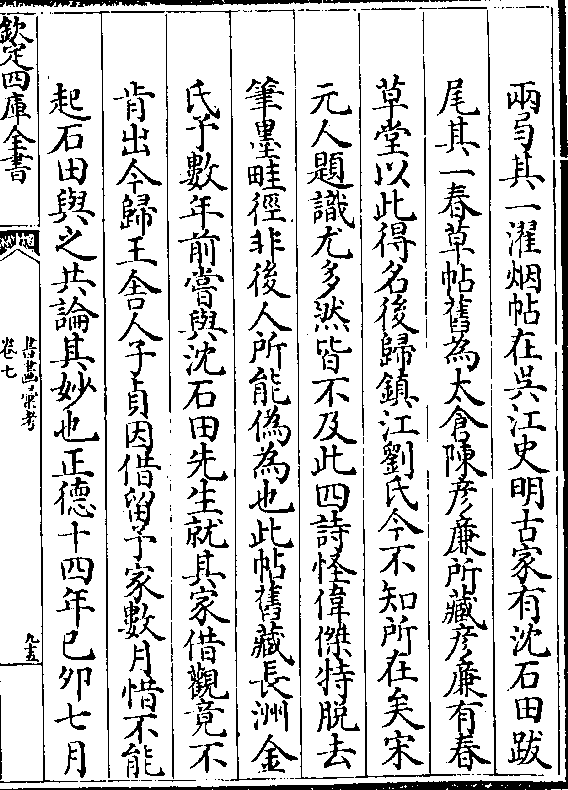 兩旬其一濯烟帖在吳江史明古家有沈石田跋
尾其一春草帖舊為太倉陳彥廉所藏彥廉有春
草堂以此得名後歸鎮江劉氏今不知所在矣宋
元人題識尤多然皆不及此四詩怪偉傑特脱去
筆墨畦徑非後人所能偽為也此帖舊藏長洲金
氏予數年前嘗與沈石田先生就其家借觀竟不
肯出今歸王舍人子貞因借留予家數月惜不能
起石田與之共論其妙也正德十四年己夘七月
欽定四庫全書
書畫彚考
卷七
九十五